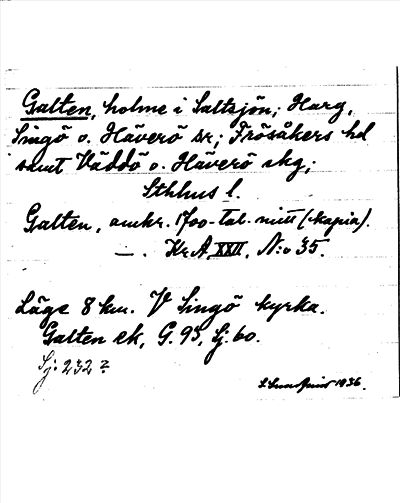 Galten, holme i Saltsjön; Harg,
Singö o. Häverö sr; Frösåkers hd
samt Väddö o. Häverö skg;
Sthlms l.
Galten, omkr. 1700-tal. mitt (kopia).
— . Kr. A XXII, N:o 35.
Läge 8 km. V Singö kyrka.
Galten ek, G. 95, Sj. 60.
Sj: 232 2
1936.